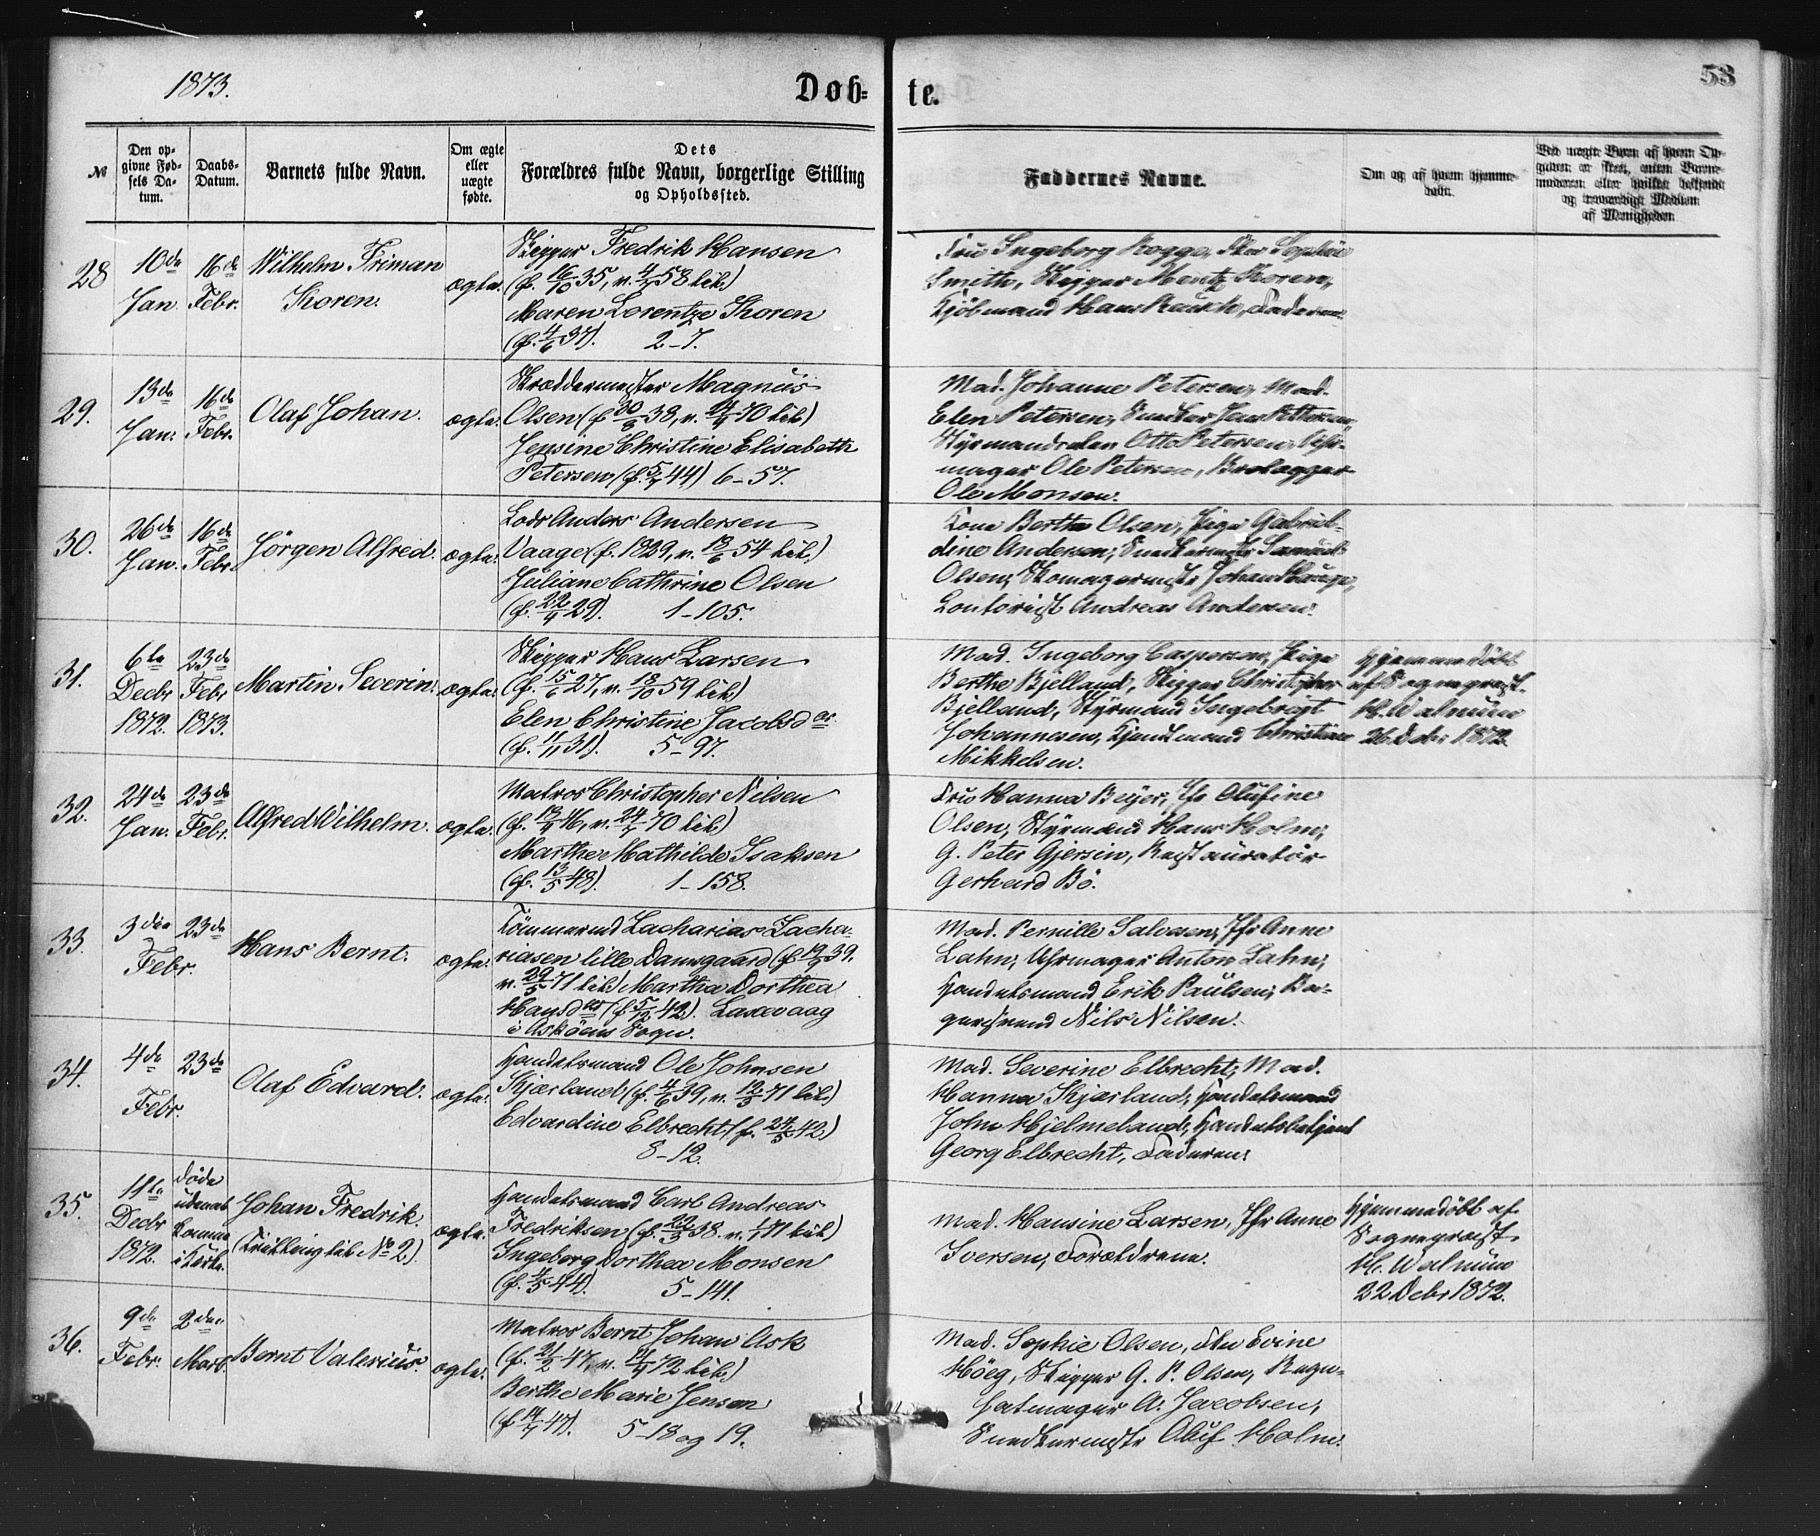 1873.
Døb-
te.
53
№
Den op-
givne Fød-
sels Da-
tum.
Daabs-
Datum.
Barnets fulde Navn.
Om ægte
eller
uægte
fødte.
Dets
Forældres fulde Navn, borgerlige Stilling
og Opholdssted.
Faddernes Navne.
Om og af hvem hjemme-
døbt.
Ved uægte Børn af hvem Op-
gaven er skeet, enten Barne-
moderen eller hvilket bekjendt
og troværdigt Medlem
af Menigheden.
28
10de
Jan.
16de
Febr.
Wilhelm Friman
Thoren.
ægte.
Skipper Fredrik Hansen
(f. 16/10 35, v. 4/7 58 lib.)
Maren Lorentze Thoren
(f. 4/6 37). 2-7.
Fru Ingeborg Rogge, Sophie
Smith, Skipper Mentz Thoren,
Kjøbmand Hans Rausch, Faderen.
29.
13de
Jan.
16de
Febr.
Olaf Johan.
ægte.
Skræddermester Magnus
Olsen (f. 30/8 38, v. 70 lib.)
Jensine Christine Elisabeth
Petersen (f. 5/7 44) 6-57.
Mad. Johanne Petersen, Mad.
Elen Petersen, Snedker Jens Petersen,
Otto Petersen,
mager Ole Petersen, Brolægger
Ole Monsen.
30.
26de
Jan.
16de
Febr.
Jørgen Alfred.
ægte.
Lods Anders Andersen
Vaage (f. 1829, v. 18/6 54 lib.)
Juliane Cathrine Olsen
(f. 22/4 29). 1-105.
Kone Berthe Olsen, Pige Gabriel-
dine Andersen, Snedkermstr Samuel
Olsen, Skomagermstr Johan Hauge,
Contorist Andreas Andersen.
31.
6te
Decbr
1872.
23de
Febr.
1873.
Martin Severin.
ægte.
Skipper Hans Larsen
(f. 15/6 27, v. 18/10 59 lib.)
Elen Christine Jacobsdr
(f. 31). 5-97.
Mad. Ingeborg Caspersen, Pige
Berthe Bjelland, Skipper Christopher
Bjelland, Styrmand Ingebrigt
Johannesen, Kjøbmand Christian
Mikkelsen.
Hjemmedøbt
af Sognepræst
H. Walnum
26 Debr 1872.
32.
24de
Jan.
23de
Febr.
Alfred Wilhelm.
ægte.
Matros Christopher Nilsen
(f. 46, v. 70 lib.)
Marthe Mathilde Isaksen
(f. 13/5 48). 1-158.
Fru Hanna Beyer, Jfr Olufine
Olsen, Styrmand Hans Holm,
G. Peter Gjersin, Restauratør
Gerhard Bø.
33.
3die
Febr.
23de
Hans Bernt.
ægte.
Tømmermd Zacharias Zacha-
riasen lille Damsgaard (f. 19/9 39,
v. 29/5 71 lib) Martha Dorthea
Hansdtr (f. 5/12 42). Laxevaag
i Askøens Sogn.
Mad. Pernille Salvesen, Jfr Anne
Lahn, Uhrmager Anton Lahn,
Handelsmand Erik Paulsen, Ba-
gersvend Nils Nilsen.
34.
4de
Febr.
23de
Olaf Edvard.
ægte.
Handelsmand Ole Johnsen
Skjærland (f. 4/6 39, v. 12/3 71 lib.)
Edvardine Elbrecht (f. 24/5 42)
8-12.
Mad. Severine Elbrecht, Mad.
Hanna Skjærland, Handelsmand
John Hjelmeland, Handelsbetjent
Georg Elbrecht, Faderen.
35.
11te
Decbr
1872.
døde
uden at
komme
i Kirke.
Johan Fredrik.
(Trilling lib. No 2.)
ægte.
Handelsmand Carl Andreas
Fredriksen (f. 22/3 38. v. 71 lib.)
Ingeborg Dorthea Monsen
(f. 4/5 44). 5-141.
Mad. Hansine Larsen, Jfr Anne
Iversen, Forældrene.
Hjemmedøbt af
Sognepræst
H. Walnum
22 Debr 1872.
36.
9de
Febr.
2den
Marts.
Bernt Valerius.
ægte.
Matros Bernt Johan Ask
(f. 21/2 47, v. 72 lib.)
Berthe Marie Jensen
(f. 47). 5-18 og 19.
Mad. Sophie Olsen, Evine
Høeg, Skipper G. P. Olsen,
A. Jacobsen,
Snedkermstr Oluf Holm.